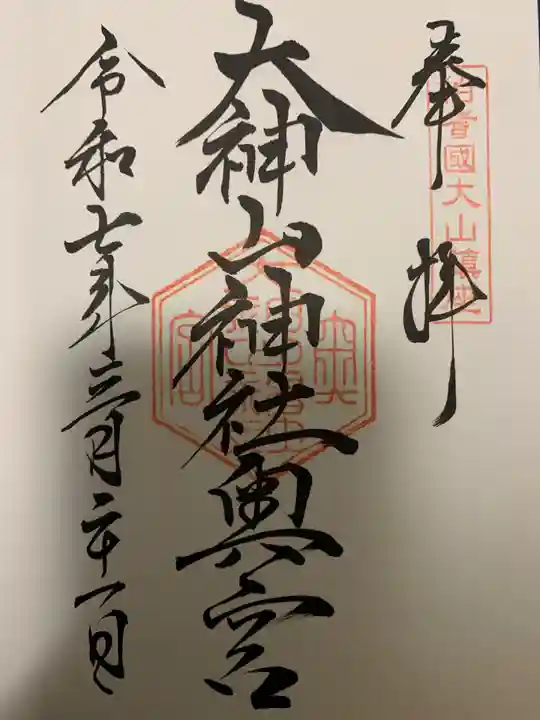 奉拝
伯耆國大山鎮座
大神山神社奥宮
令和七年三月二十一日